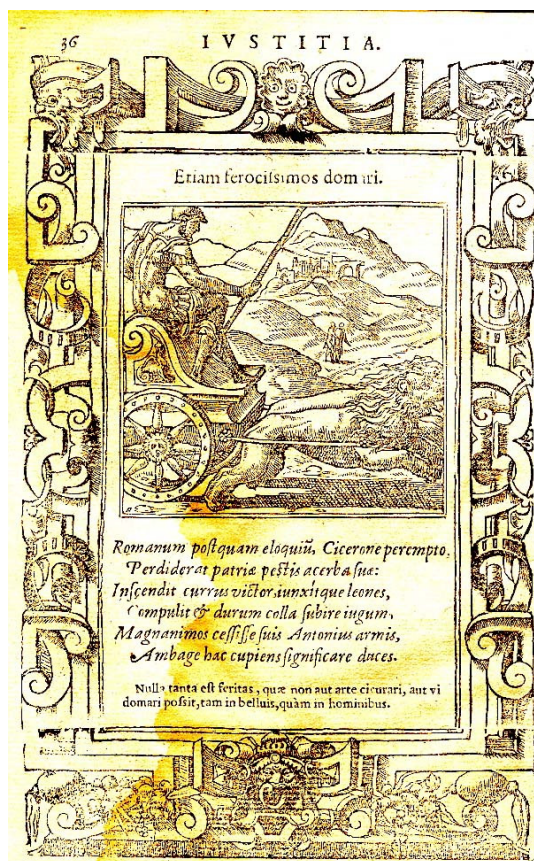 36
IVSTITIA.
Etiam ferocissimos domari.
Romanum postquam eloquiũ, Cicerone perempto,
Perdiderat patriæ pestis acerba suæ:
Inscendit currus victor, iunxitque leones,
Compulit & durum colla subire iugum,
Magnanimos cessisse suis Antonius armis,
Ambage hac cupiens significare duces.
Nulla tanta est feritas, quæ non aut arte cicurari, aut vi
domari possit, tam in belluis, quàm in hominibus.